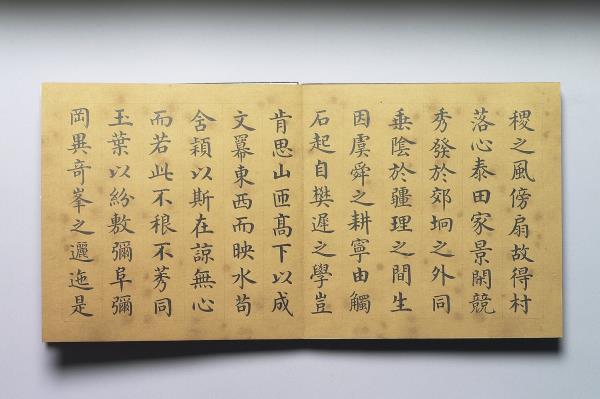 稷之風傍扇故得村
落心泰田家景閑競
秀發於郊坰之外同
垂陰於疆理之間生
因虞舜之耕寧由觸
石起自樊遲之學豈
肯思山匝高下以成
文冪東西而映水苟
含穎以斯在諒無心
而若此不稂不莠同
玉葉以紛敷彌阜彌
岡異奇峯之邐迤是